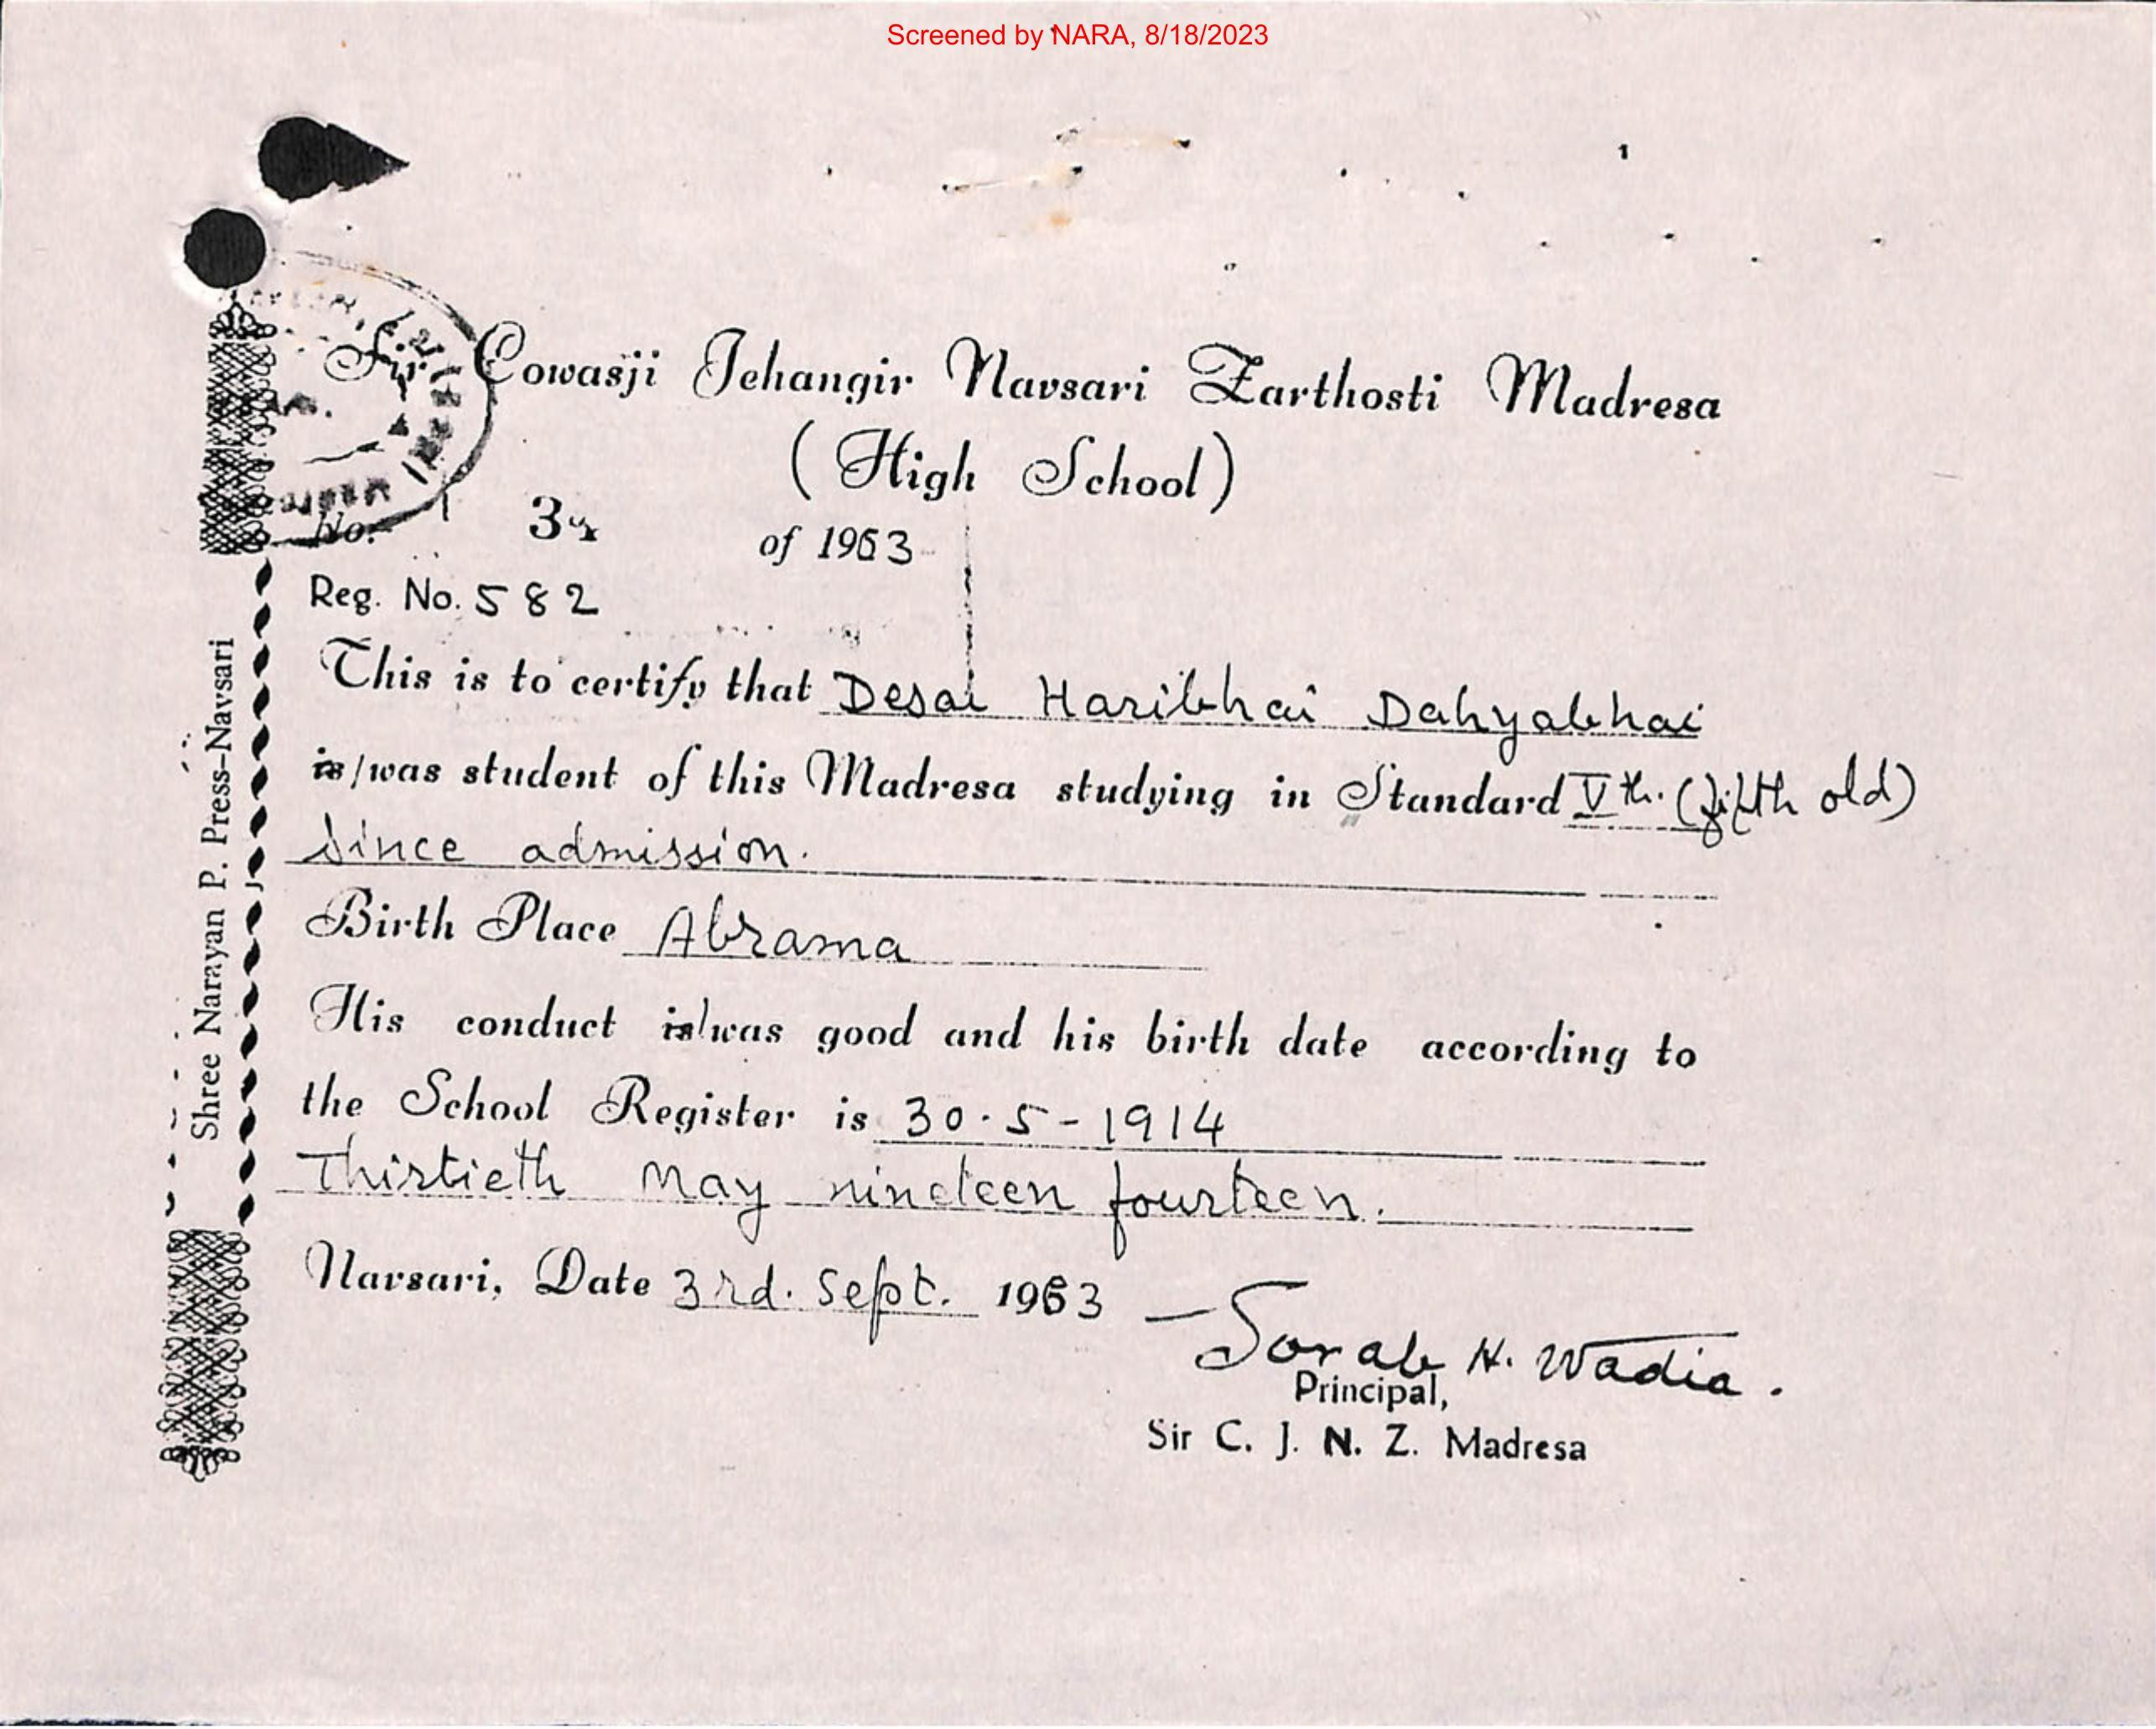 Screened by NARA, 8/18/2023
Sir Cowasji Jehangir Navsari Zarthosti Madresa
(High School)
No. of 1963
Reg. No. 582
This is to certify that Desai Haribhai Dahyabhai
is/was student of this Madresa studying in Standard Vth. (fifth old)
since admission.
Birth Place Abrama
His conduct is/was good and his birth date according to
the School Register is 30.5-1914
Thirtieth May nineteen fourteen.
Navsari, Date 3rd. Sept. 1963
Sorab H. Wadia.
Principal,
Sir C. J. N. Z. Madresa
Shree Narayan P. Press-Navsari